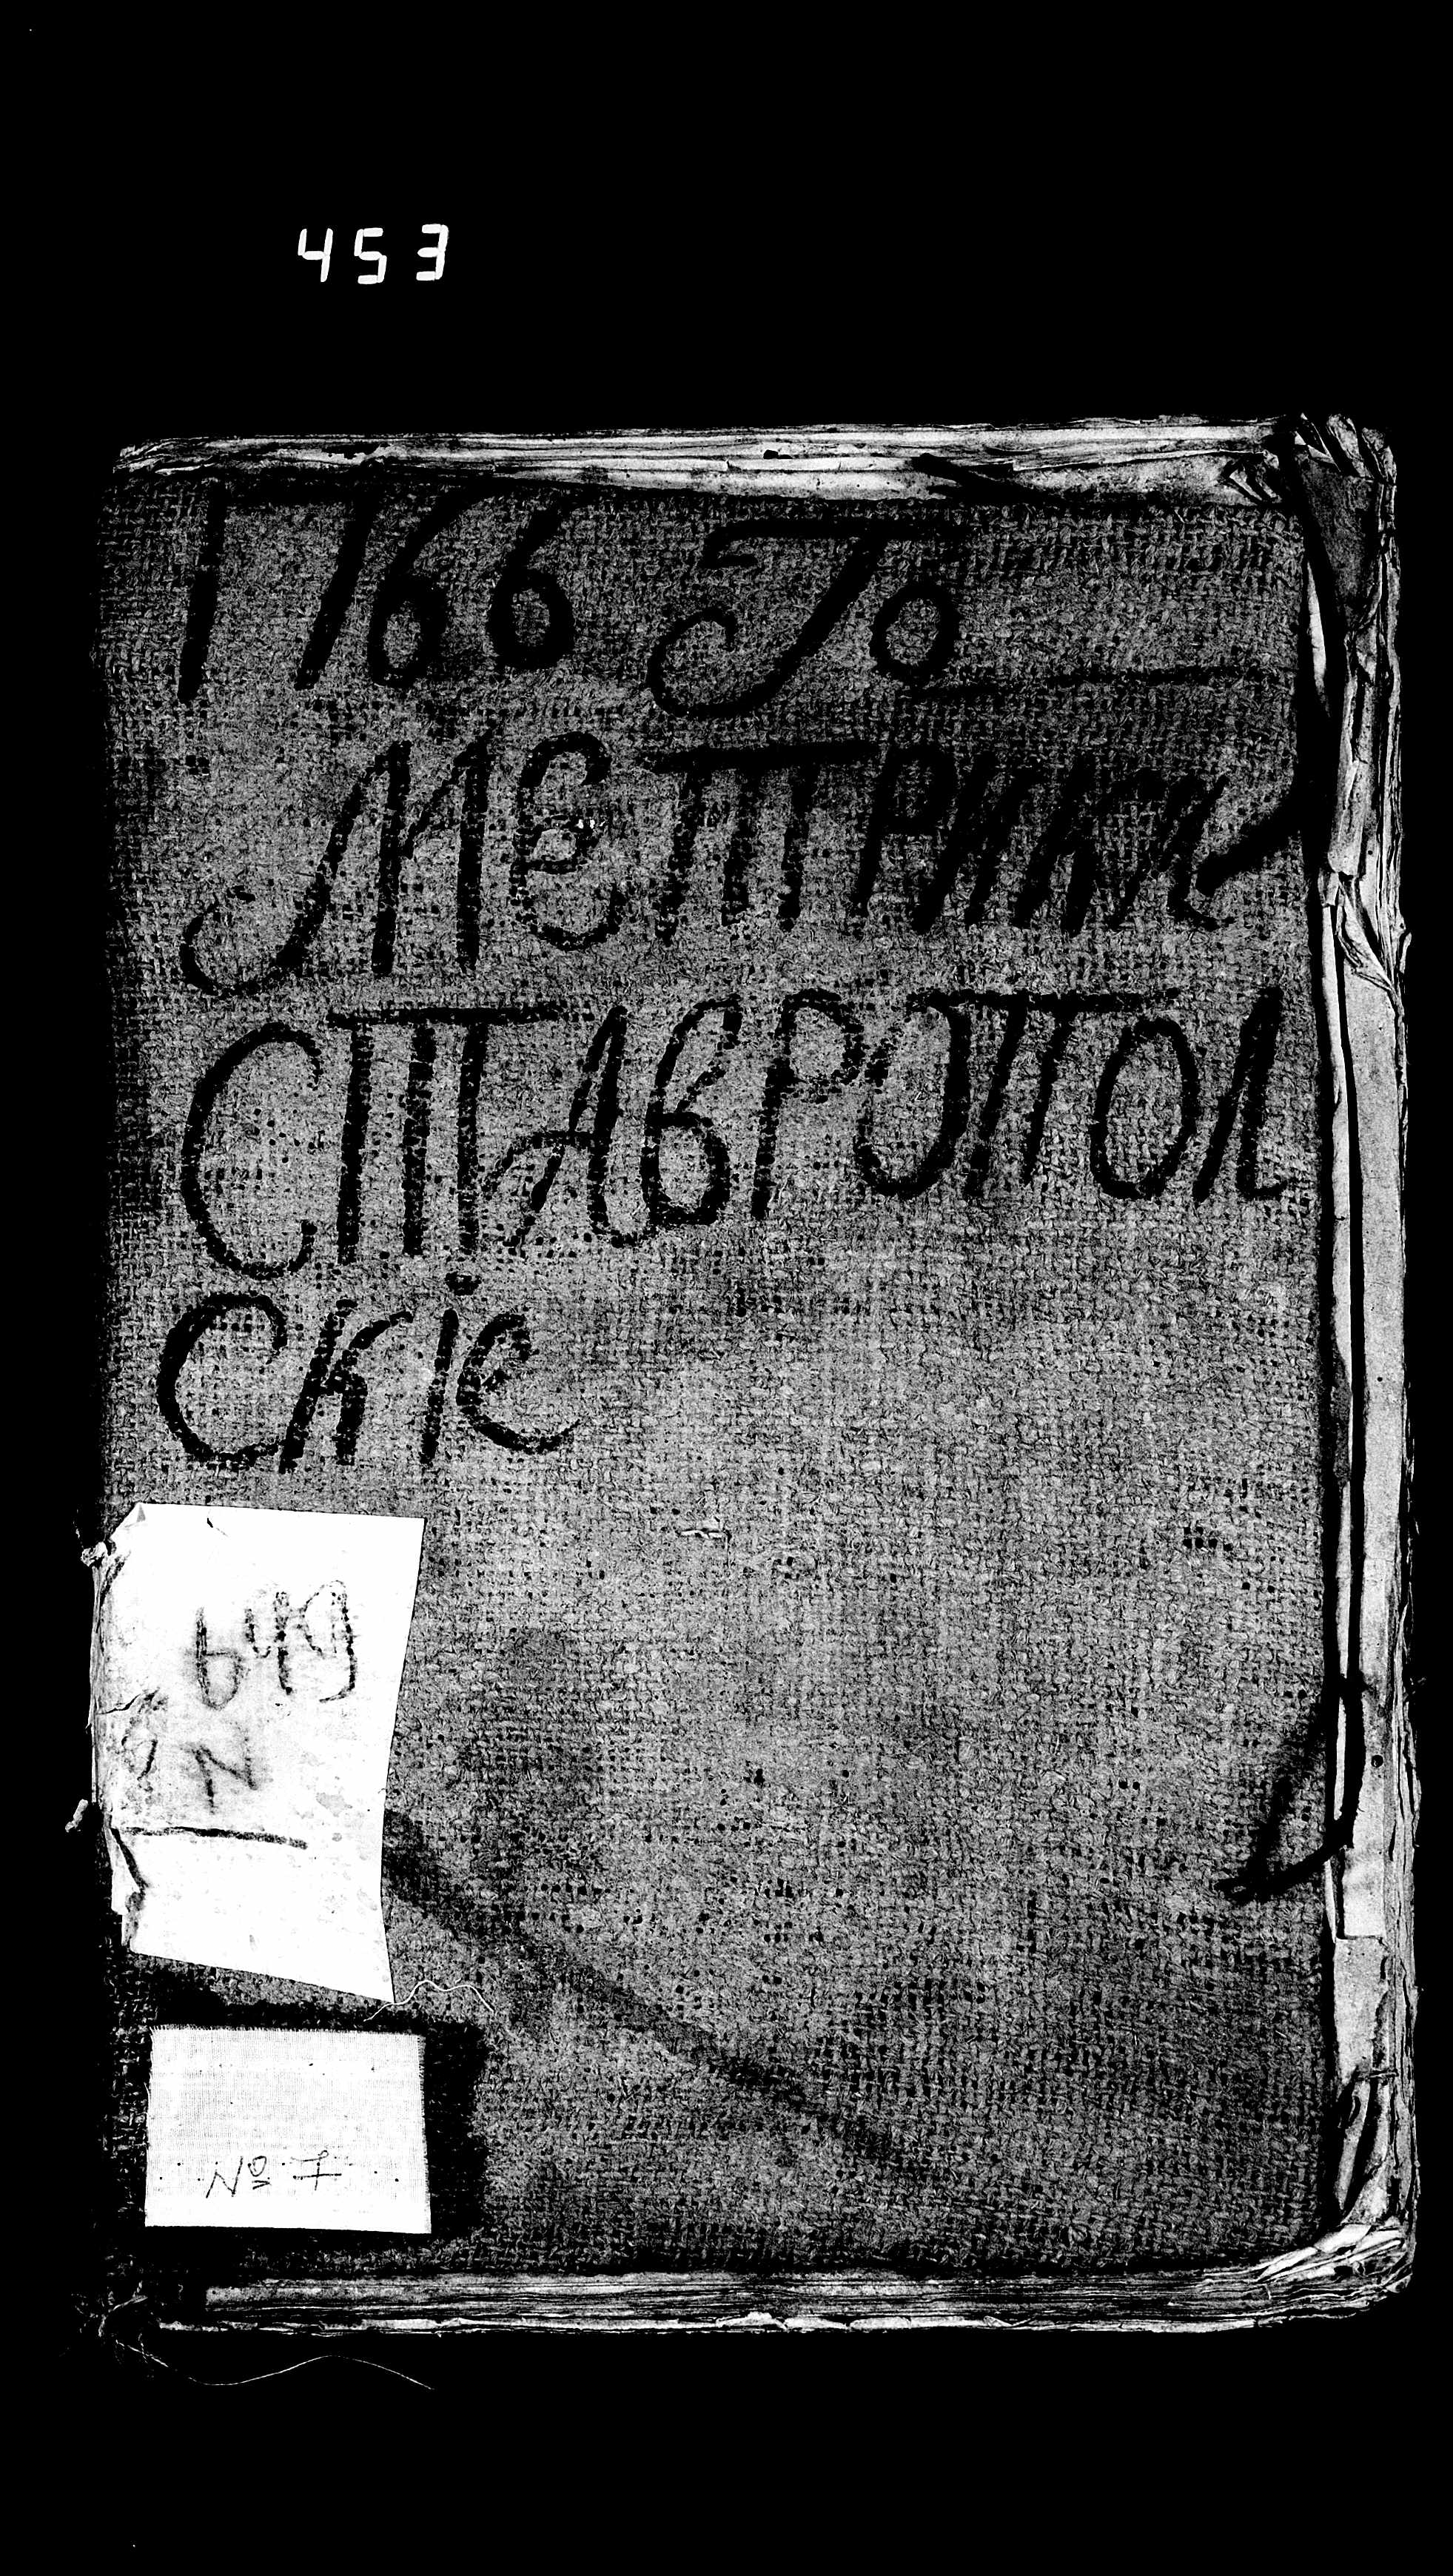 453
1766 Го
Метрики
Ставропол
скіе
№ 7